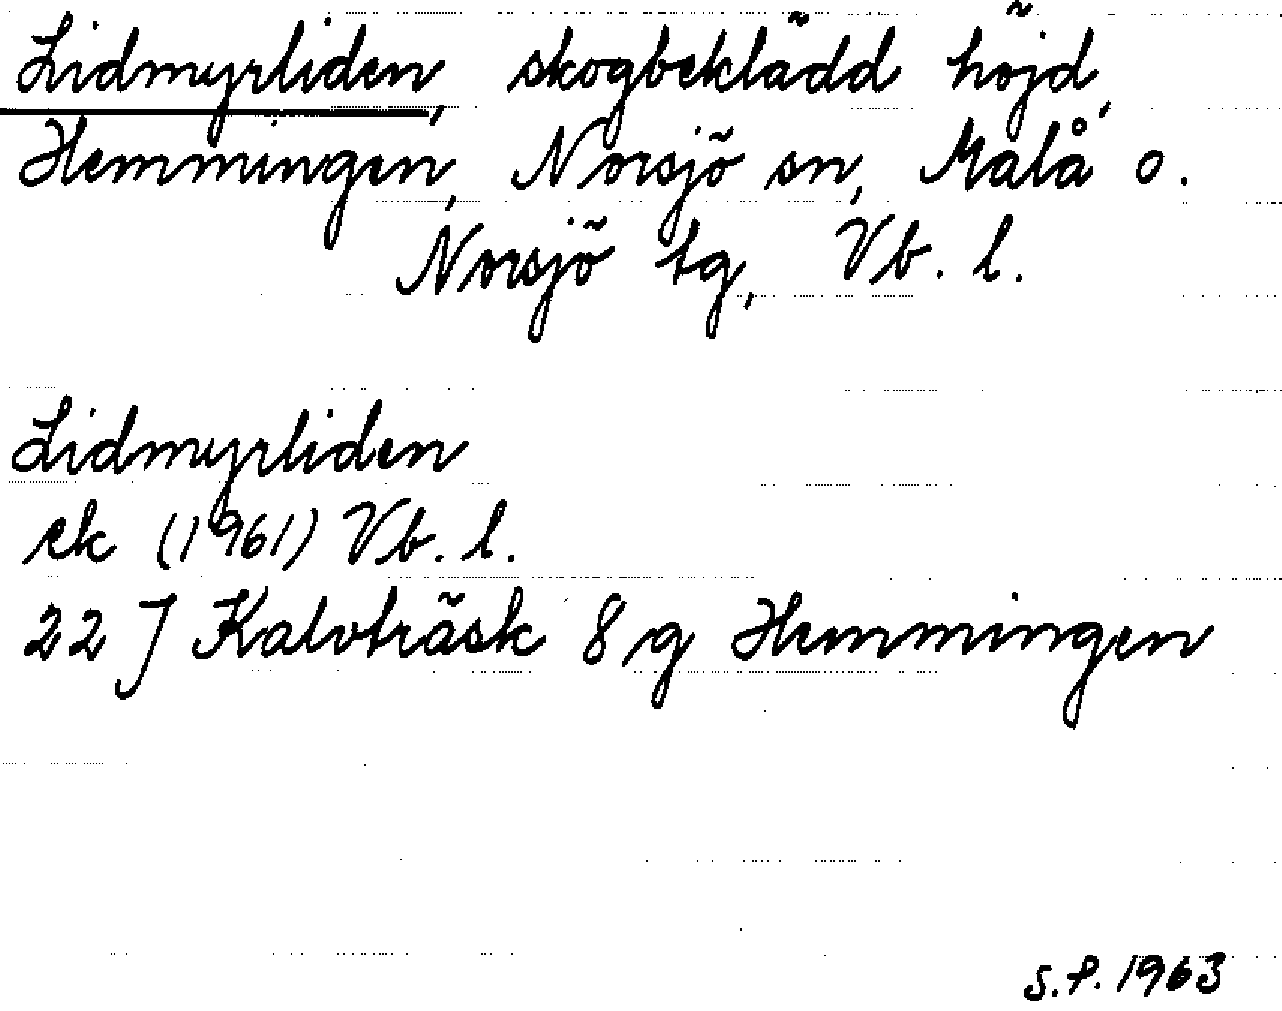 Lidmyrliden, skogbeklädd höjd,
Hemmingen, Norsjö sn, Malå o.
Norsjö tg, Vb. l.
Lidmyrliden
ek (1961) Vb. l.
22 J Kalvträsk 8 g Hemmingen
S.P. 1963